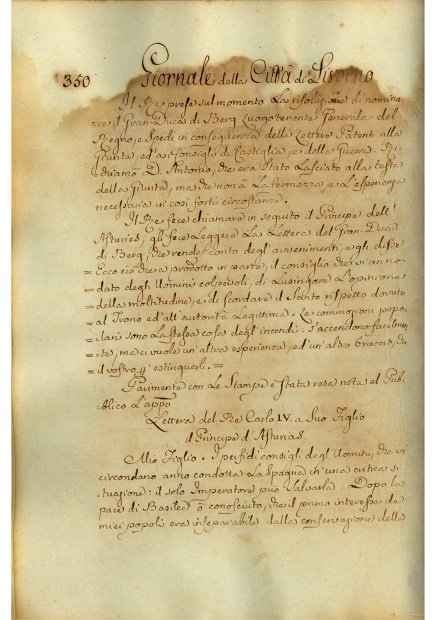 350
Giornale della Città di Livorno
Il Re prese sul momento La risoluzione di nomina:
re il Gran-Duca di Berg Luogotenente Generale del
Regno, e spedì in conseguenza delle Lettere Patenti alla
Giunta, ed a Consigli di Castiglia, e della Guerra.
D. Antonio, che era stato Lasciato alla testa
della Giunta, ma che non à La fermezza, e L'esperienza
necessaria in così forti circostanze.
Il Re fece chiamare in seguito il Principe dell'
Asturies, gli fece Leggere La Lettera del Gran-Duca
di Berg, che rende conto degl'avvenimenti, e gli disse
= Ecco ciò che a prodotto in parte, il consiglio che v'an no
= dato degl'Uomini colpevoli, di Lusingare L'opinione
= della moltitudine, e di scordare il Santo rispetto dovuto
= al Trono ed all'autorità Legittima. Le commozioni popo
= lari sono La stessa cosa degl'incendi: s'accendono facilmen
= te, ma ci vuole un'altra esperienza, ed un'altro braccio, che
= il vostro p' estinguerli. =
Parimente con Le Stampe è stata resa nota al Pub-
blico L'appo
Lettera del Re Carlo IV. a Suo Figlio
il Principe d'Asturias.
Mio Figlio. I perfidi consigli degl'Uomini, che vi
circondano anno condotta La Spagna in un'a critica si
tuazione: il solo Imperatore può Salvarla. Dopo La
pace di Basilea ò conosciuto, che il primo interesse de
miei popoli era inseparabile dalla conservazione della